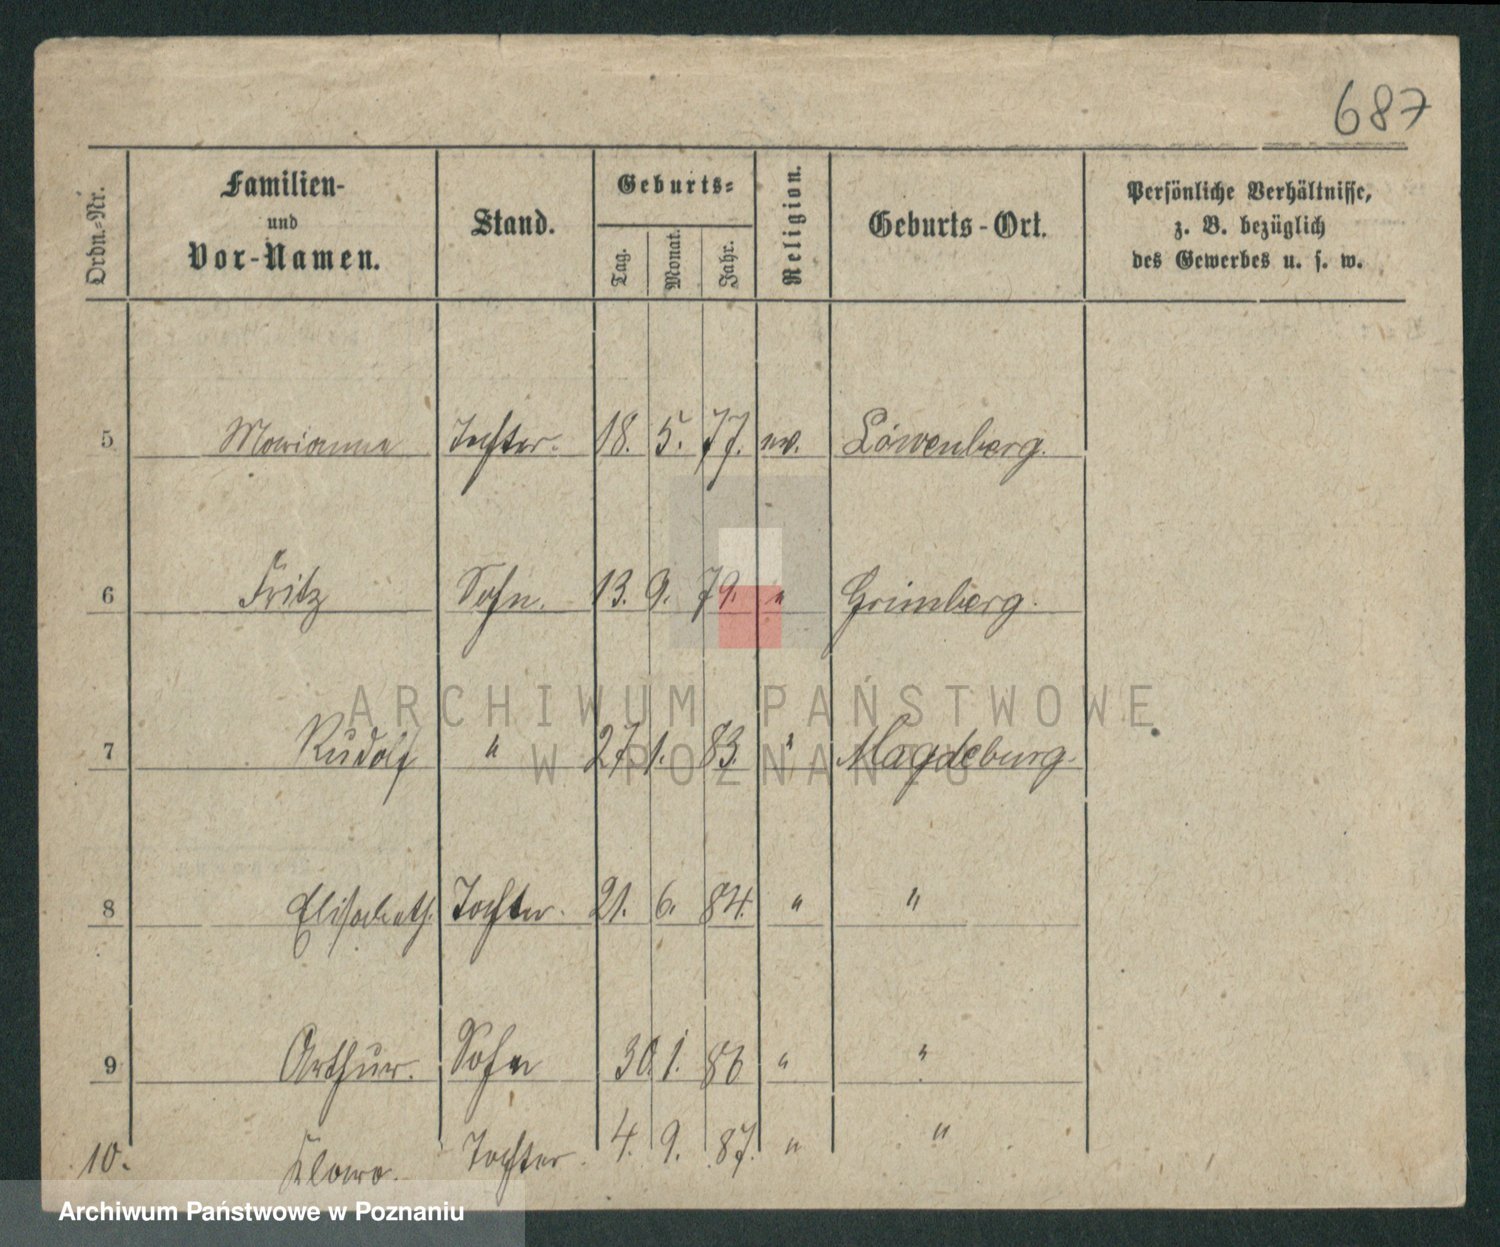 687
Ordn.-Nr. Familien- und Vor-Namen. Stand. Geburts- Tag. Monat. Jahr. Religion. Geburts-Ort. Persönliche Verhältnisse, z. B. bezüglich des Gewerbes u. s. w.
5 Marianne Tochter. 18. 5. 77. ev. Löwenberg.
6 Fritz Sohn. 13. 9. 79. " Grimberg.
7 Rudolf " 27. 1. 83. " Magdeburg.
8 Elisabeth. Tochter. 21. 6. 84. " "
9 Arthur. Sohn 30. 1. 86 " "
10. Klara. Tochter. 4. 9. 87. " "
ARCHIWUM PAŃSTWOWE
W POZNANIU
Archiwum Państwowe w Poznaniu